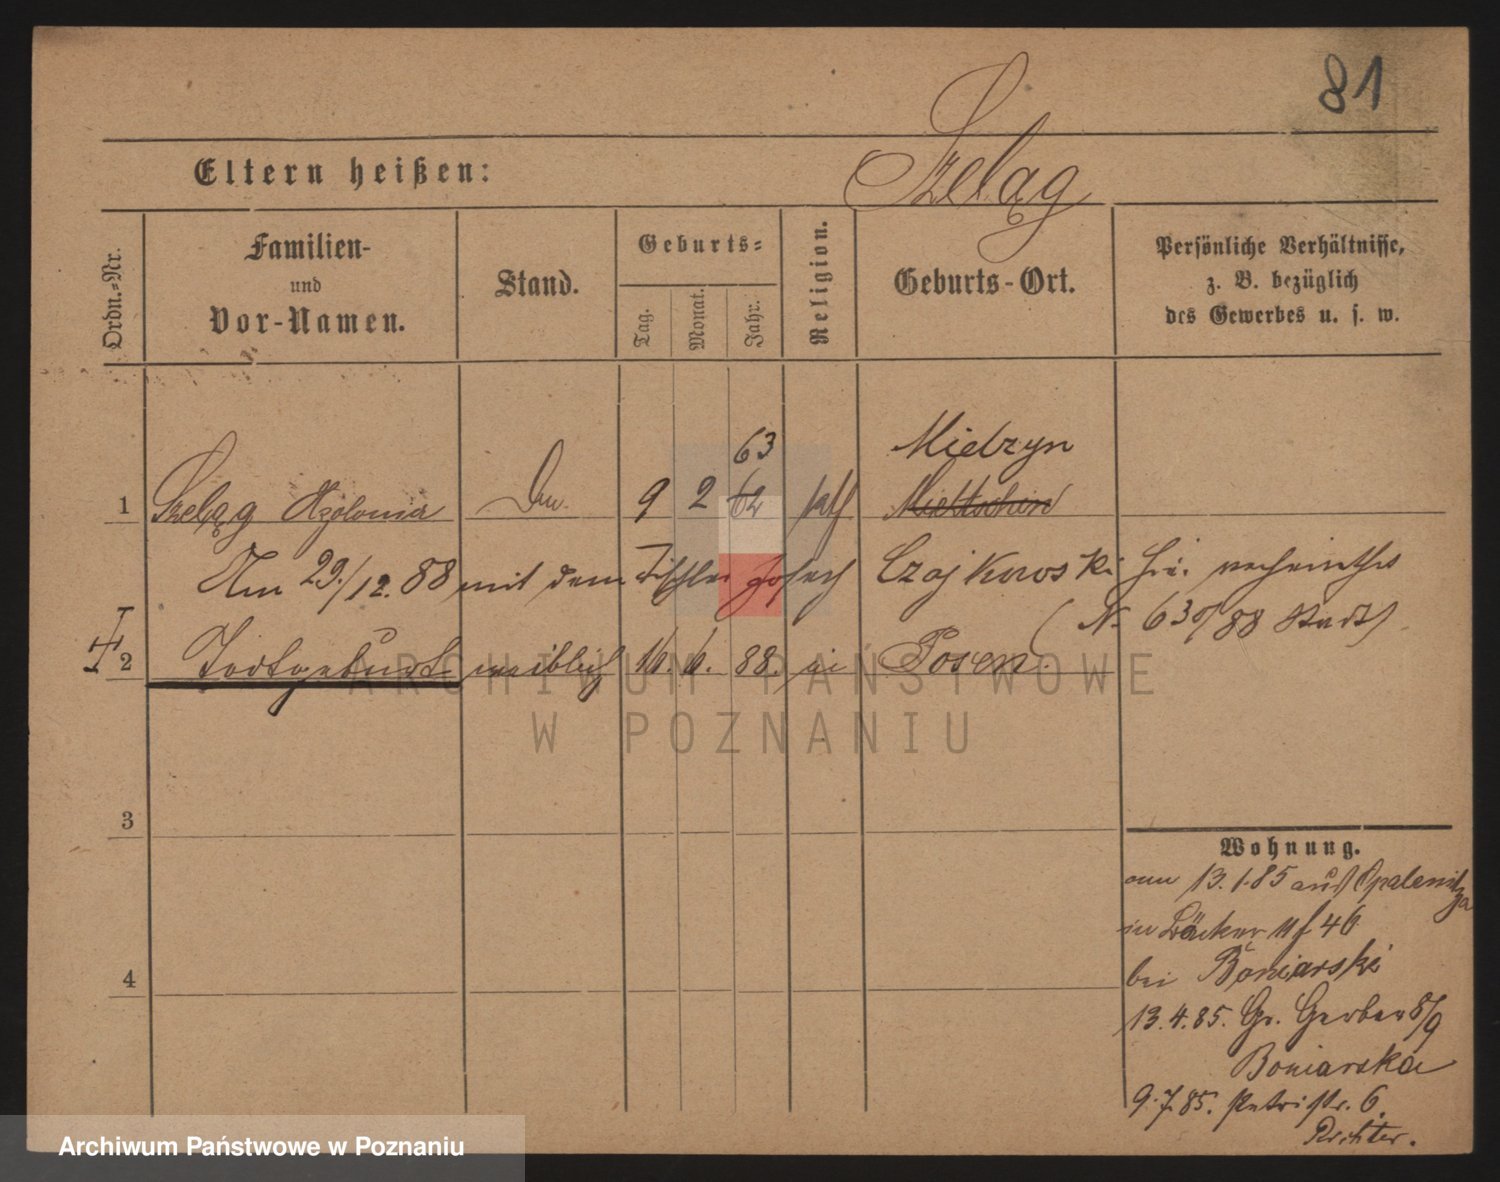 81
Eltern heißen: Szeląg
Ordn.-Nr.
Familien-
und
Vor-Namen.
Stand.
Geburts-
Tag.
Monat.
Jahr.
Religion.
Geburts-Ort.
Persönliche Verhältnisse,
z. B. bezüglich
des Gewerbes u. s. w.
63 Mielzyn
1 Szeląg Apolonia 9 2 62 kath Mieltschin
Am 29./12. 88 mit dem Tischler Josef Czajkowski hie. verheirathet
(N. 630/88 Stadt)
2 Todtgeburt weiblich 16. 6. 88. in Posen.
3
4
Wohnung.
am 13.1.85 aus Opalenitza
in Bäcker 46
bei Boniarski
13.4.85. Gr. Gerber 8/9
Boniarska
9.7.85. Petristr. 6.
Richter.
ARCHIWUM PAŃSTWOWE
W POZNANIU
Archiwum Państwowe w Poznaniu